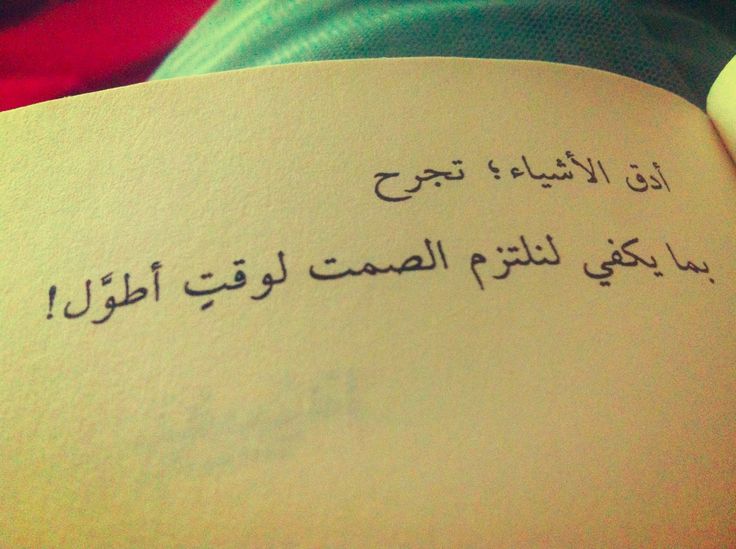 أدق الأشياء؛ تجرح
بما يكفي لنلتزم الصمت لوقتٍ أطوَّل!